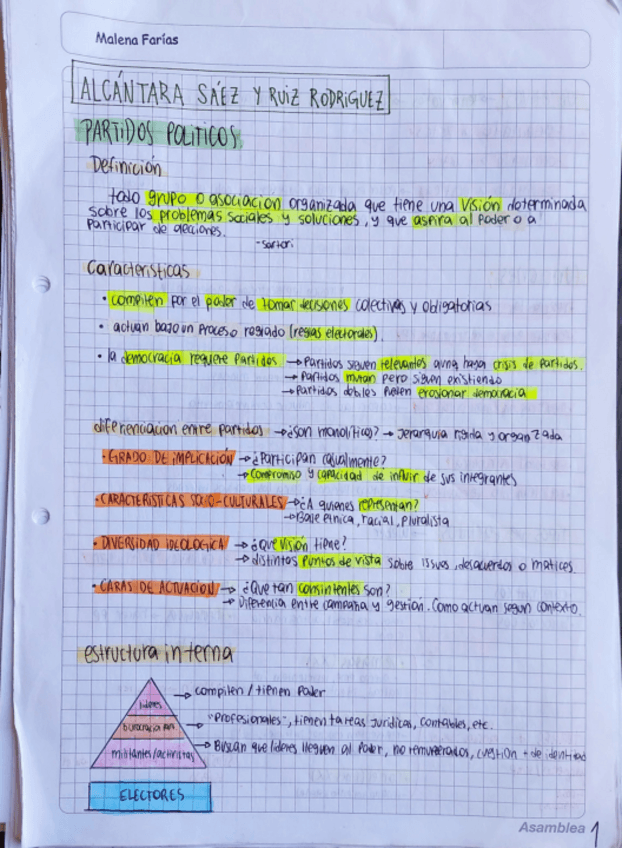 Malena Farías
ALCÁNTARA SÁEZ Y RUIZ RODRIGUEZ
PARTIDOS POLITICOS
Definición
todo grupo o asociacion organizada que tiene una visión determinada
sobre los problemas sociales y soluciones, y que aspira al poder o a
participar de elecciones.
-Sartori
Caracteristicas
• compiten por el poder de tomar decisiones colectivas y obligatorias
• actuan bajo un proceso reglado (reglas electorales).
• la democracia requiere partidos → Partidos siguen relevantes aunq haya crisis de partidos.
→ Partidos mutan pero siguen existiendo
→ Partidos debiles pueden erosionar democracia
diferenciacion entre partidos → ¿son monoliticos? → Jerarquia rigida y organizada
• GRADO DE IMPLICACIÓN → ¿Participan igualmente?
→ Compromiso y capacidad de influir de sus integrantes
• CARACTERISTICAS SOCIO-CULTURALES → ¿A quienes representan?
→ Base etnica, racial, pluralista
• DIVERSIDAD IDEOLOGICA → ¿Que visión tiene?
→ distintos puntos de vista sobre issues, desacuerdos o matices.
• CARAS DE ACTUACION → ¿Que tan consistentes son?
→ Diferencia entre campaña y gestión. Como actuan segun contexto.
estructura interna
lideres → compiten / tienen poder
burocracia → "Profesionales", tienen tareas juridicas, contables, etc.
militantes/activistas → Buscan que lideres lleguen al poder, no remunerados, cuestion + de identidad
ELECTORES
Asamblea 1